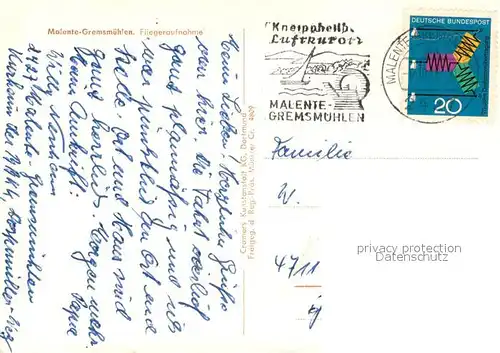 Malente-Gremsmühlen. Fliegeraufnahme
Meine Lieben! Herzliche Grüße
von hier. Die Fahrt verlief
ganz planmäßig und ich
war pünktlich am Ort und
Stelle. Ort und Haus sind
ganz herrlich. Morgen mehr.
Papa
Meine Anschrift:
Willy
2427 Malente-Gremsmühlen
Kurhaus
Cramers Kunstanstalt KG, Dortmund
Freigeg. d. Reg. Präs. Münster
Kneippheilb.
Luftkurort
MALENTE-
GREMSMÜHLEN
MALENTE
DEUTSCHE BUNDESPOST
20
Familie
W.
4711
privacy protection
DatenSchutz